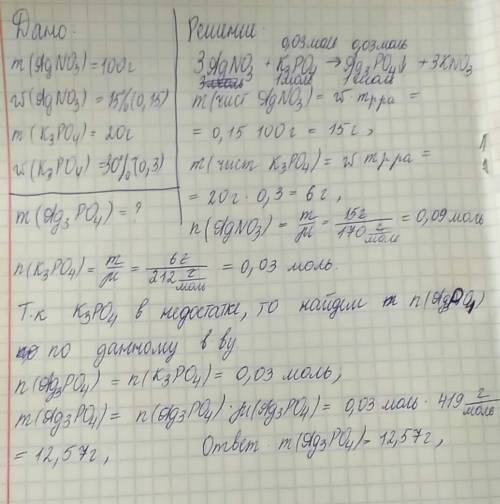 Дано:
m(AgNO3)=100г
ω(AgNO3)=15%(0,15)
m(K3PO4)=20г
ω(K3PO4)=30%(0,3)
m(Ag3PO4)=?
Решение:
0,03моль 0,03моль
3AgNO3 + K3PO4 → Ag3PO4↓ + 3KNO3
3моль 1моль 1моль
m(чист AgNO3) = ω·mр-ра =
= 0,15·100г = 15г,
m(чист K3PO4) = ω·mр-ра =
= 20г·0,3 = 6г,
n(AgNO3) = m/μ = 15г/170 г/моль = 0,09моль
n(K3PO4) = m/μ = 6г/212 г/моль = 0,03 моль.
Т.к K3PO4 в недостатке, то найдем m n(Ag3PO4)
по по данному в ву
n(Ag3PO4) = n(K3PO4) = 0,03 моль,
m(Ag3PO4) = n(Ag3PO4)·μ(Ag3PO4) = 0,03 моль · 419 г/моль
= 12,57г, Ответ: m(Ag3PO4) = 12,57г,